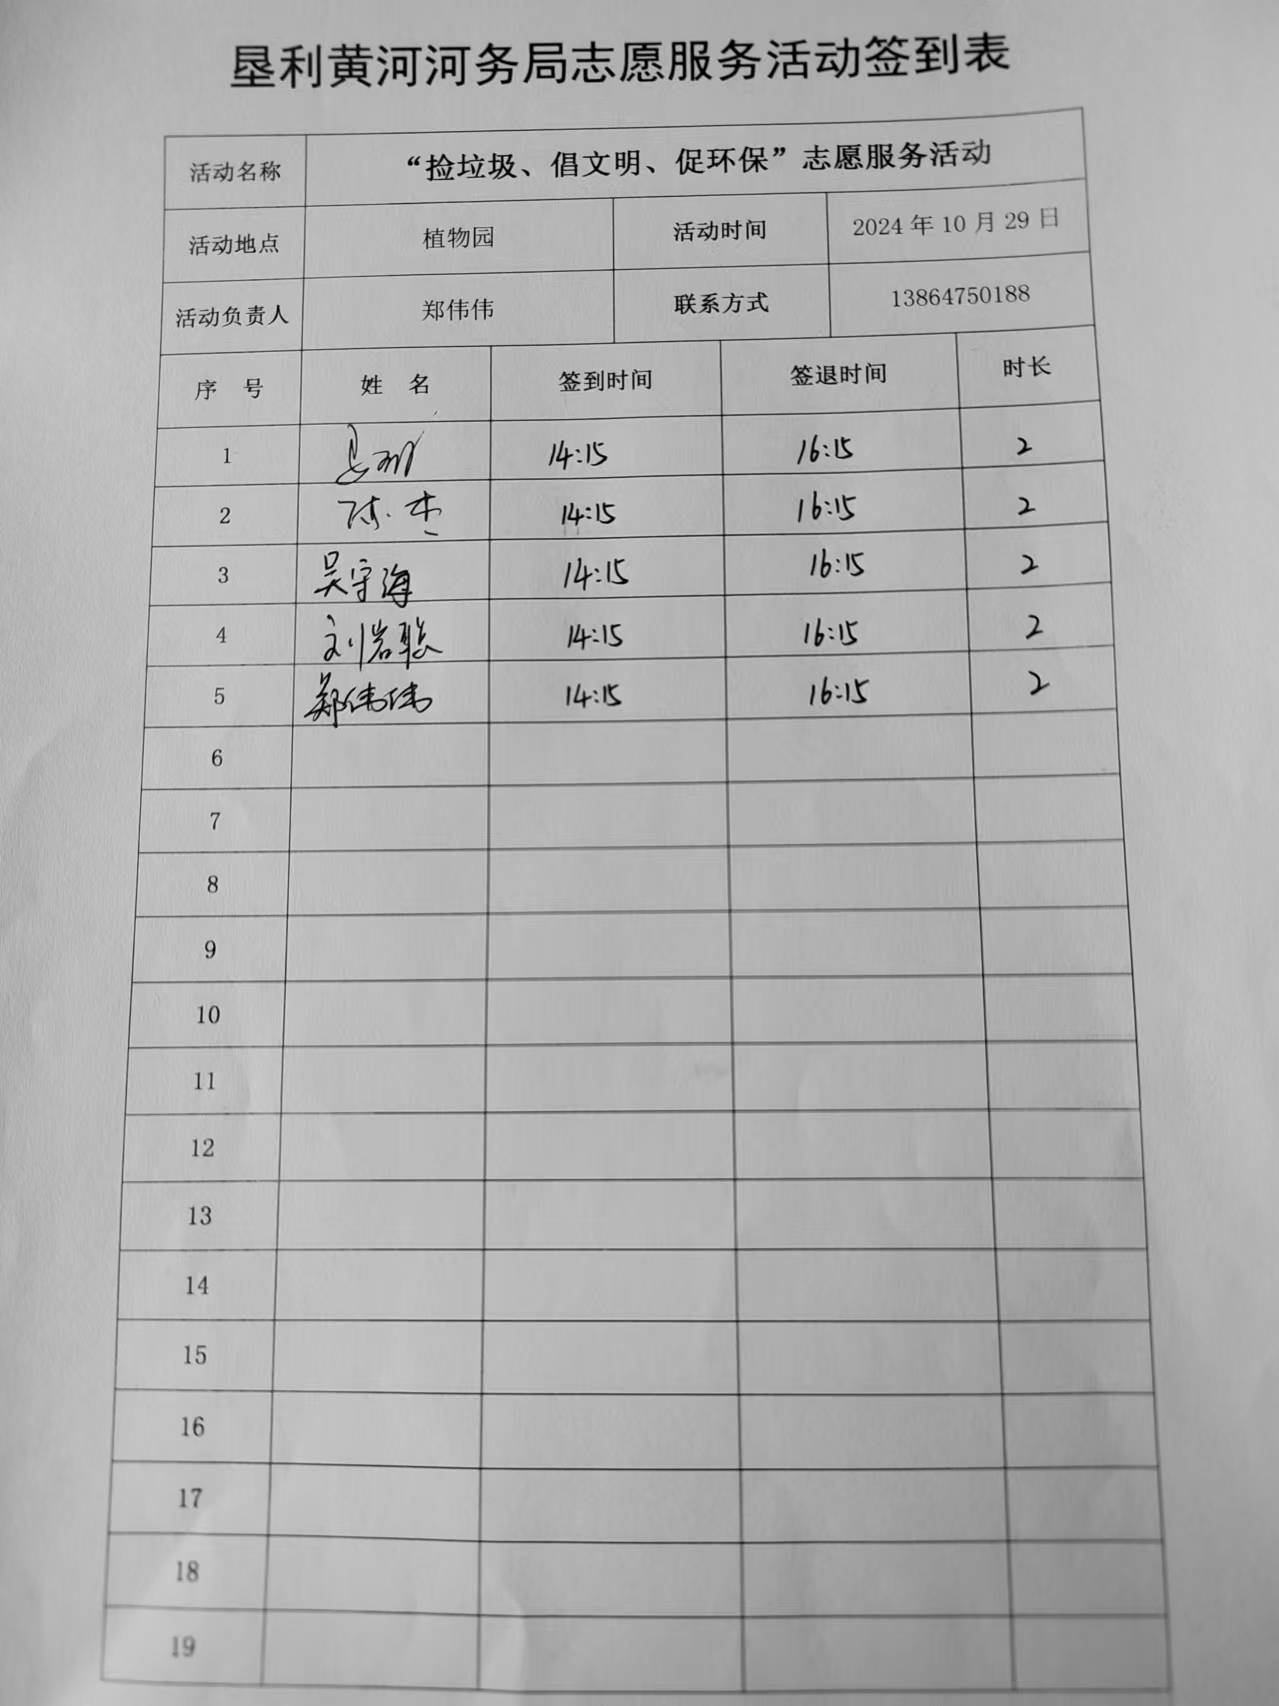 垦利黄河河务局志愿服务活动签到表
活动名称 “捡垃圾、倡文明、促环保”志愿服务活动
活动地点 植物园 活动时间 2024年10月29日
活动负责人 郑伟伟 联系方式 13864750188
序 号 姓 名 签到时间 签退时间 时长
1 14:15 16:15 2
2 陈杰 14:15 16:15 2
3 吴守海 14:15 16:15 2
4 刘岩聪 14:15 16:15 2
5 郑伟伟 14:15 16:15 2
6
7
8
9
10
11
12
13
14
15
16
17
18
19